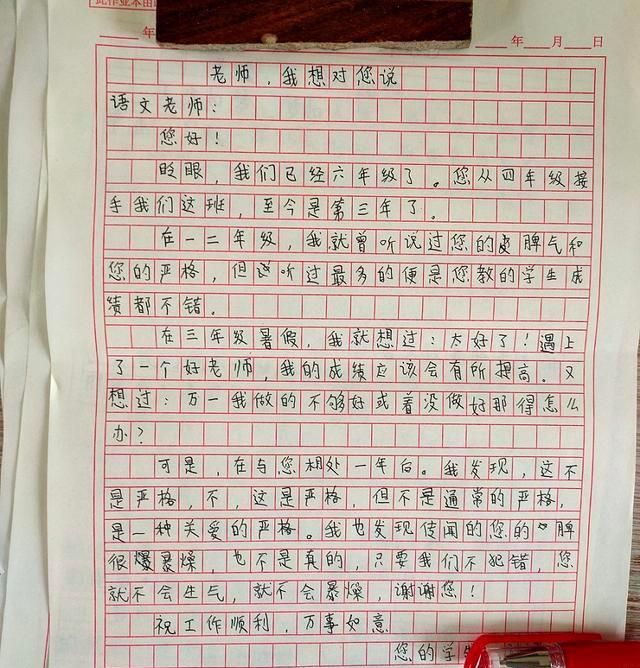 年
年 月 日
老师，我想对您说
语文老师：
您好！
眨眼，我们已经六年级了。您从四年级接
手我们这班，至今是第三年了。
在一二年级，我就曾听说过您的脾气和
您的严格，但听过最多的便是您教的学生成
绩都不错。
在三年级暑假，我就想过：太好了！遇上
了一个好老师，我的成绩应该会有所提高。又
想过：万一我做的不够好或着没做好那得怎么
办？
可是，在与您相处一年后。我发现，这不
是严格，不，这是严格，但不是通常的严格，
是一种关爱的严格。我也发现传闻的您的"脾
很暴燥，也不是真的，只要我们不犯错，您
就不会生气，就不会暴燥，谢谢您！
祝工作顺利，万事如意
您的学生